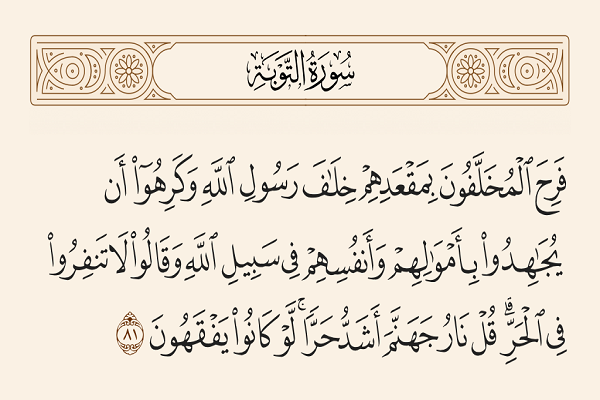 سُورَةُ التَّوْبَةِ
فَرِحَ ٱلْمُخَلَّفُونَ بِمَقْعَدِهِمْ خِلَٰفَ رَسُولِ ٱللَّهِ وَكَرِهُوٓا۟ أَن
يُجَٰهِدُوا۟ بِأَمْوَٰلِهِمْ وَأَنفُسِهِمْ فِى سَبِيلِ ٱللَّهِ وَقَالُوا۟ لَا تَنفِرُوا۟
فِى ٱلْحَرِّ ۗ قُلْ نَارُ جَهَنَّمَ أَشَدُّ حَرًّا ۚ لَّوْ كَانُوا۟ يَفْقَهُونَ ٨١